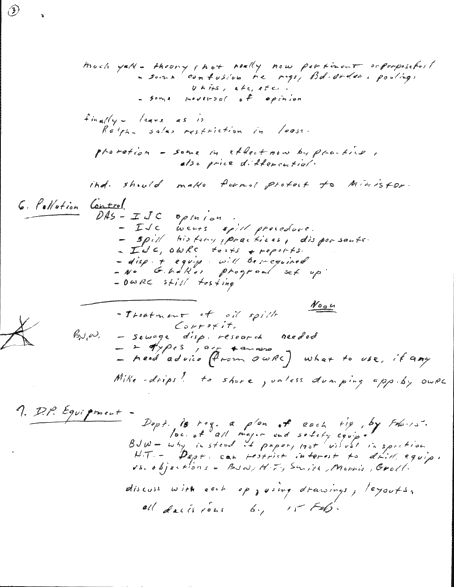 3
much yak - theory, not really now pertinent or purposeful
- some confusion re regs, Bd. order, pooling,
units, etc, etc.
- some reversal of opinion
finally - leave as is
Ralph - sales restriction in lease.
proration - some in effect now by practice,
also price differential.
ind. should make formal protest to Minister.
6. Pollution Control
DAS - IJC opinion.
- IJC wants spill procedure.
- spill history, practices, dispersants.
- IJC, OWRC tests & reports.
- disp. & equip. will be required
- No G. Lakes program set up
- OWRC still testing
Noon
- Treatment of oil spills
Correxit.
- sewage disp. research needed
- 2 types, are
- need advice (from OWRC) what to use, if any
Mike - drips? to shore, unless dumping app. by OWRC
7. D.P. Equipment -
Dept. is req. a plan of each rig, by Feb. 15.
loc. of all major and safety equip.
BJW - why instead of paper, not visual inspection
H.T. - Dept. can restrict interest to drill. equip.
vs. objections - BJW, H.T., Smith, Morris, Groll.
discuss with each op, using drawings, layouts,
all decisions by 15 Feb.